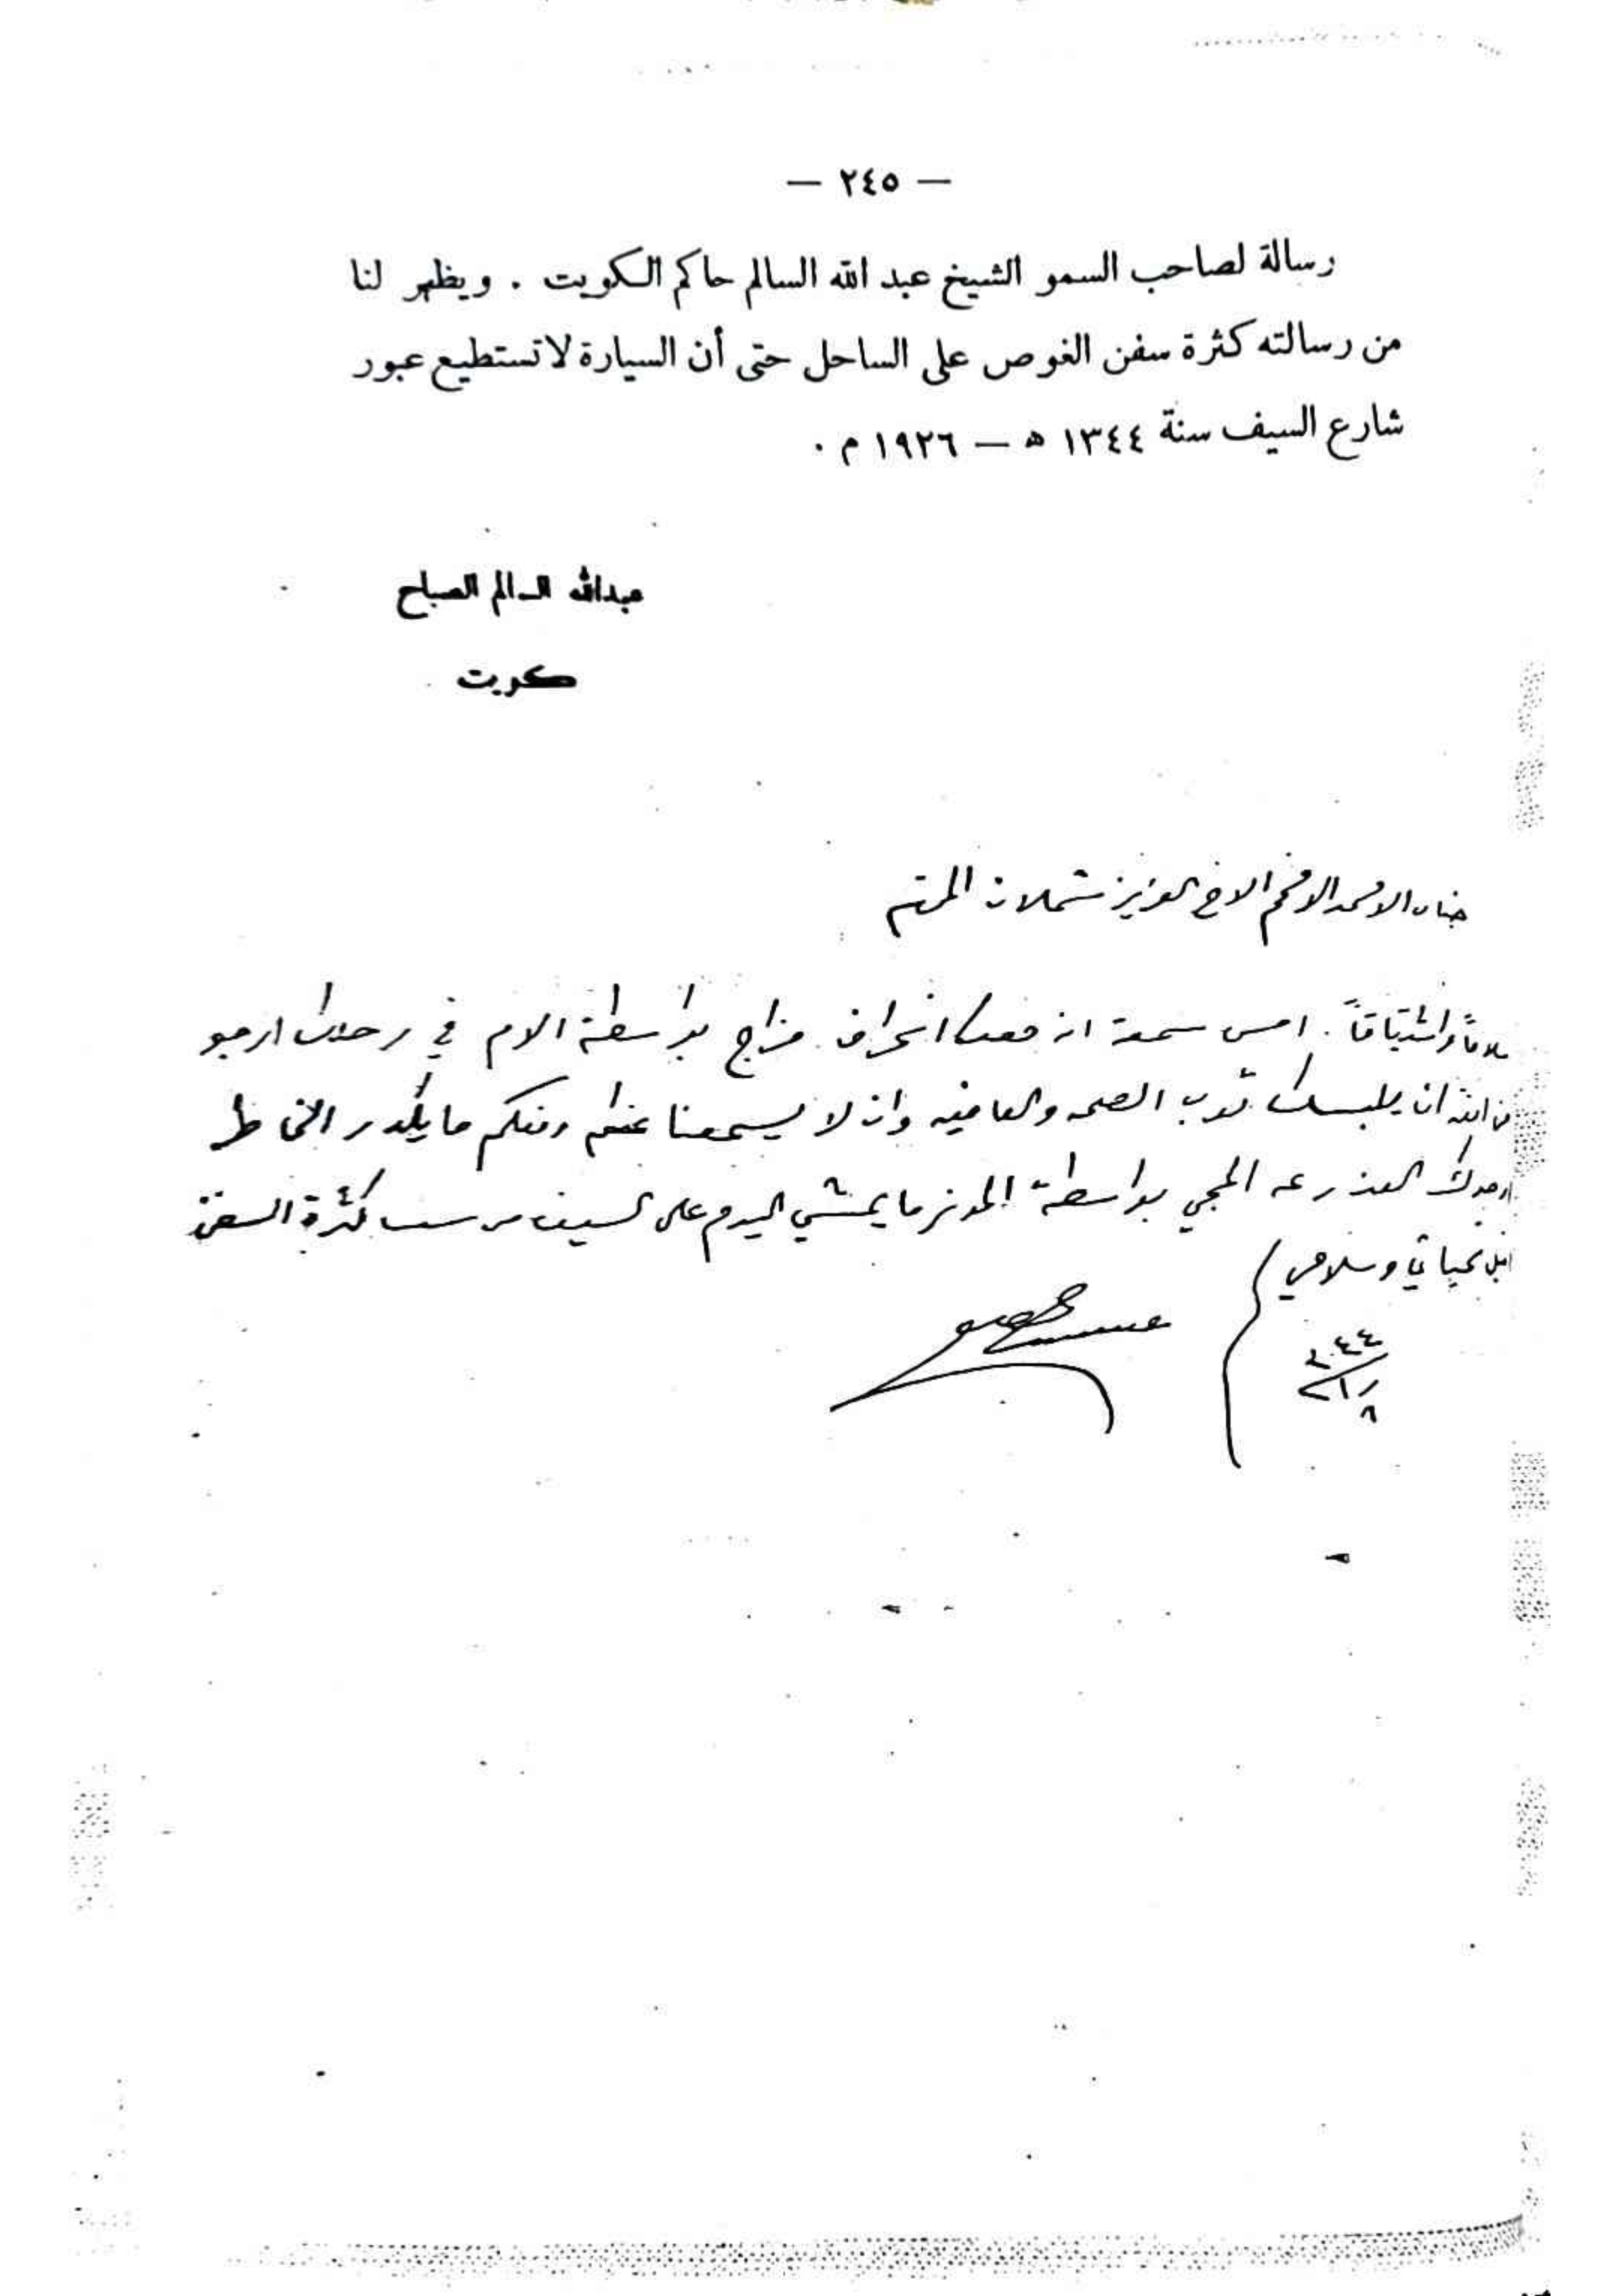 — ٢٤٥ —
رسالة لصاحب السمو الشيخ عبد الله السالم حاكم الكويت . ويظهر لنا
من رسالته كثرة سفن الغوص على الساحل حتى أن السيارة لا تستطيع عبور
شارع السيف سنة ١٣٤٤ ه — ١٩٢٦ م .
عبدالله السالم الصباح
كويت
جناب الامجد الافخم الاخ العزيز شملان المحترم
سلاماً واشتياقاً . امس سمعة ان معك انحراف مزاج بواسطة الام في رجلك ارجو
من الله ان يلبسك ثوب الصحه والعافيه وان لا يسمعنا عنكم ومنكم ما يكدر الخاطر
ارجوك العذر عن المجي بواسطة الموتر ما يمشي اليوم على السيف من سبب كثرة السفن
اقبل تحياتي وسلامي
٣٤٤